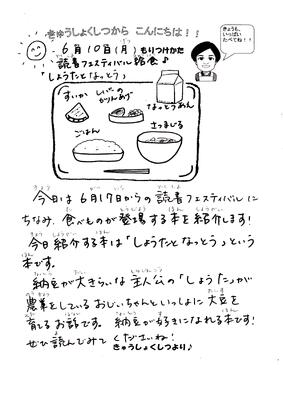 きゅうしょくしつから こんにちは!!
きょうも、
いっぱい
たべてね!!
6月10日(月) もりつけかた
読書フェスティバル給食♪
「しょうたとなっとう」
すいか
レバーの
かりんあげ
なっとうあん
ごはん
さつまじる
今日は6月17日からの読書フェスティバルに
ちなみ、食べものが登場する本を紹介します!
今日紹介する本は「しょうたとなっとう」という
本です。
納豆が大きらいな主人公の「しょうた」が
農業をしているおじいちゃんといっしょに大豆を
育てるお話です。納豆が好きになれる本です!
ぜひ読んでみてくださいね!
きゅうしょくしつより♪